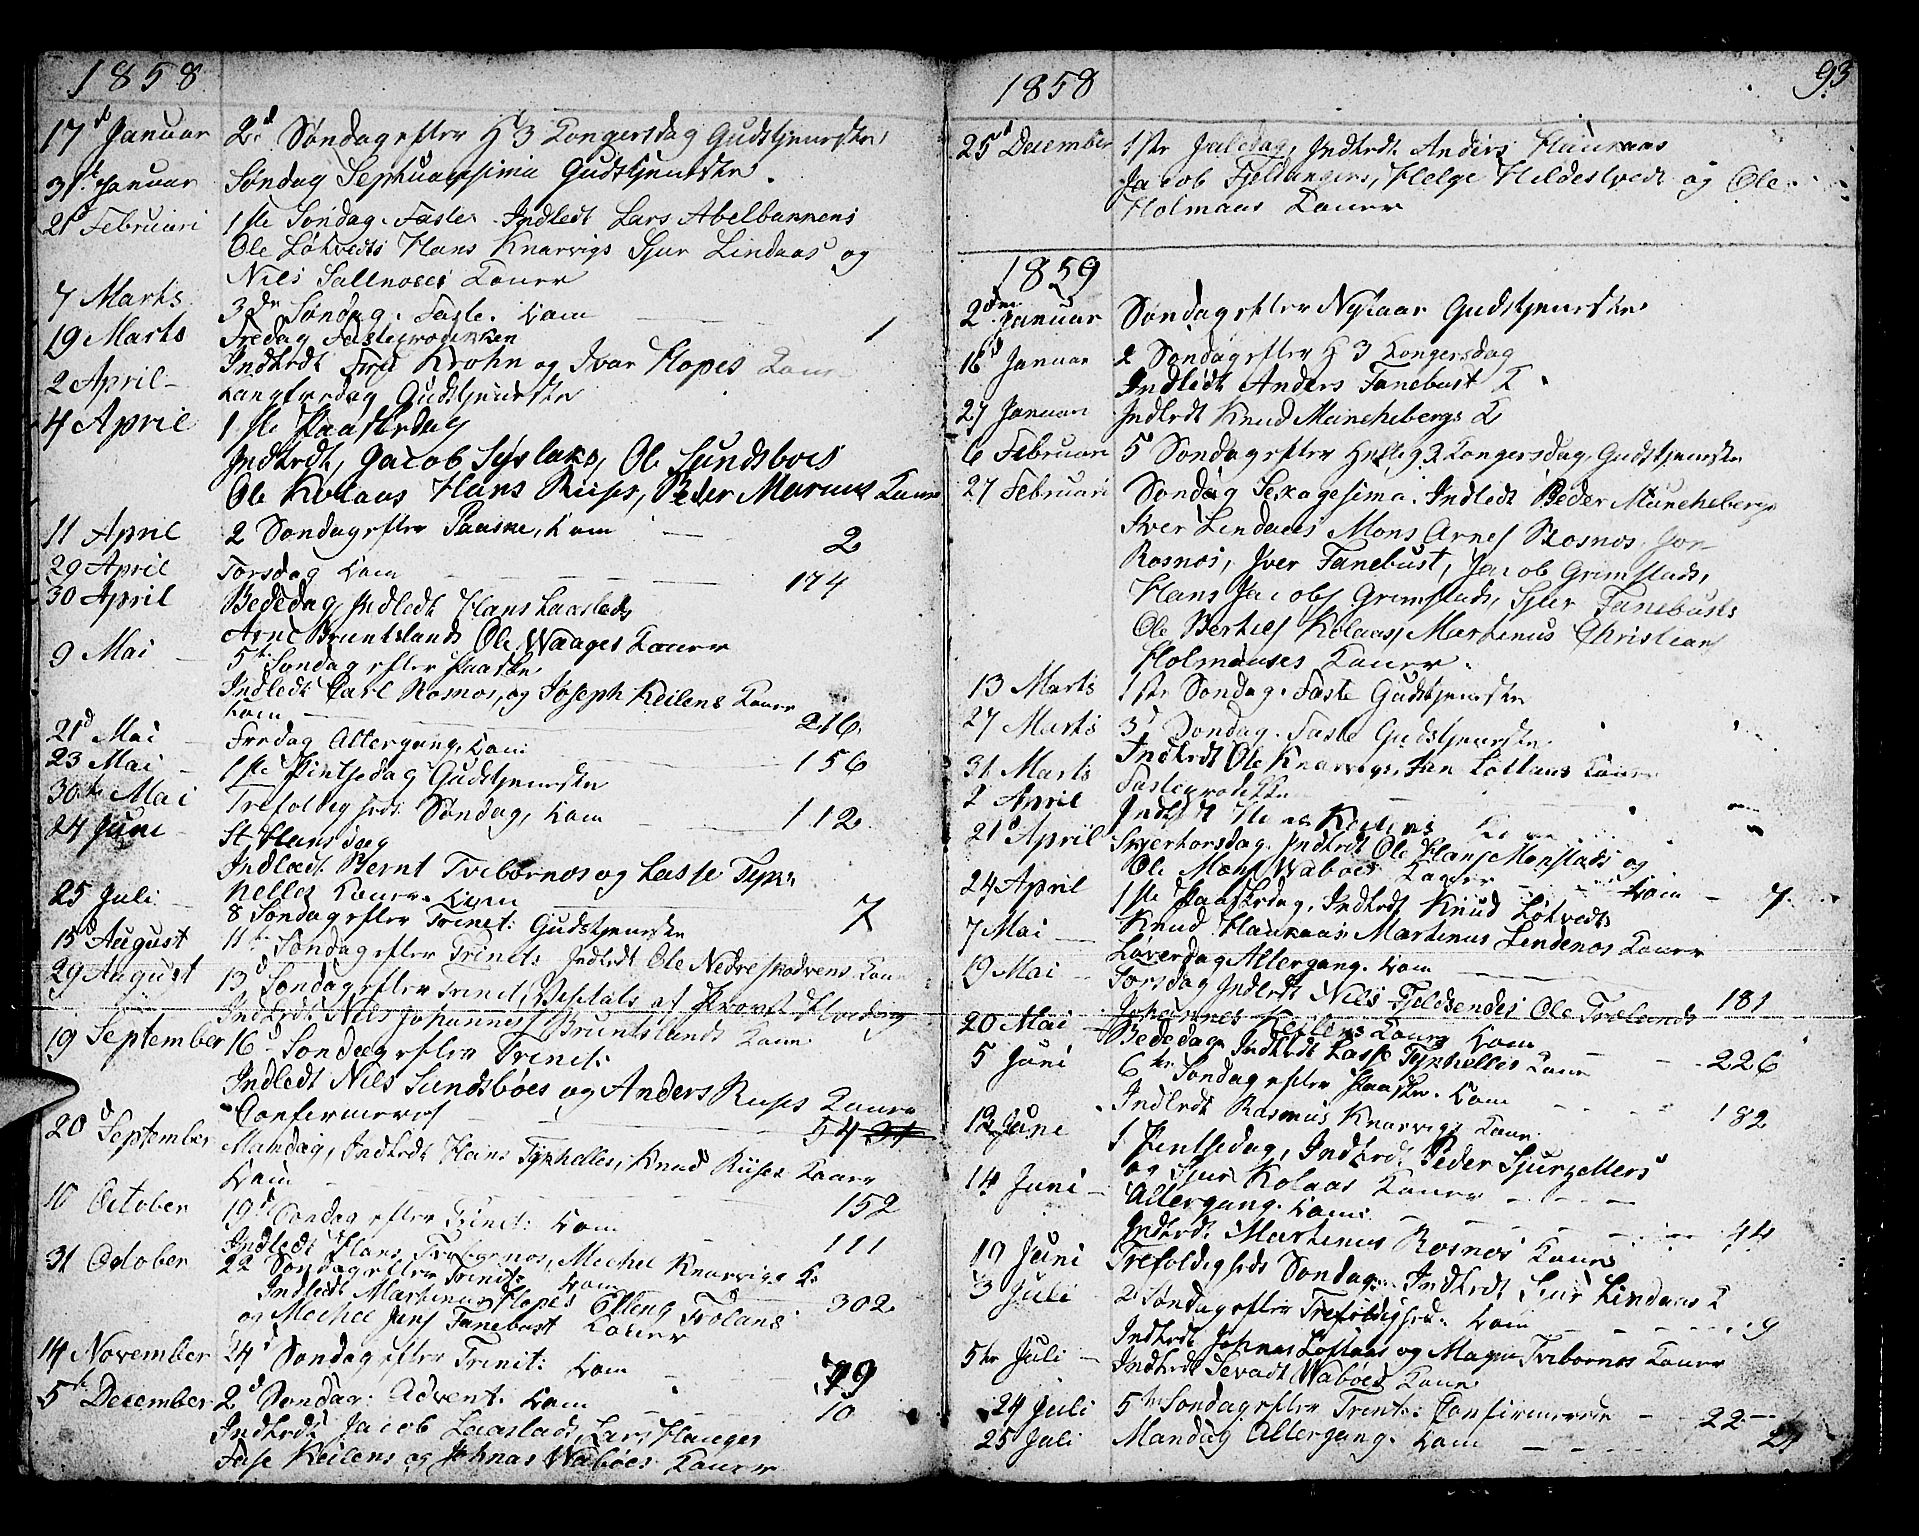 1858
17d Januar 2d Søndag efter H 3 Kongersdag Gudstjeneste
31d Januar Søndag Septuagesima Gudstjeneste.
21d Februari 1ste Søndag i Faste Indledt Lars Abelbannens
Ole Løtvedts Hans Knarvigs Sjur Lindaas og
Nils Kaner
7 Marts 3die Søndag i Faste. Kom — — 1
19 Marts Fredag Fasteprædiken
Indledt Fru Krohn og Ivar Hopes Kaner
2 April Langfredag Gudstjeneste
4 April 1ste Paaskedag
Indledt, Jacob Ole Sundsboes
Ole Kolaas Hans Riises, Peder Marcus Kaner
11 April 2 Søndag efter Paaske, Kom — 2
29 April Torsdag Kom — — — 174
30 April Bededag, Indledt Hans Laastads
Arne Bruntslands Ole Waages Kaner
9 Mai — 5te Søndag efter Paaske
Indledt Carl Rosnos, og Joseph Keilens Kaner
Kom — — 216
21d Mai — Fredag Altergang, Kom — 156
23 Mai — 1ste Pintsedag Gudstjeneste
30te Mai Trefoldigheds Søndag, Kom — 112
24 Juni St Hansdag
Indledt Bernt Tvebornos og Lasse
Kaner. Kom — 7
25 Juli — 8 Søndag efter Trinit: Gudstjeneste
15d August 11te Søndag efter Trinit: Indledt Ole Kane
29 August 13d Søndag efter Trinit, Visitats af Provst
Indledt Nils Johannes Bruntslands Kane
19 September 16d Søndag efter Trinit:
Indledt Nils Sundsbøes og Anders Riises Kaner
Confirmeret — — 54
20d September Mandag, Indledt Hans Tyshelles, Knud Riises Kaner
Kom — — — 152
10 October 19d Søndag efter Trinit: Kom — 111
Indledt Hans Michel Knarvigs K.
31 October 22 Søndag efter Trinit: Kom — 302
Indledt Martinus Hopes
og Michel Jens Tanebust Kaner
14 November 24d Søndag efter Trinit: Kom — 79
5te December 2d Søndag i Advent. Kom — 10
Indledt Jacob Laastads, Lars Hauges
Keilens og Johnas Wabøes Kaner
93
1858
25d December 1ste Juledag, Indledt Anders Haukaas
Jacob Fjeldangers, Helge Hildestvedt og Ole
Holmaas Kaner
1859
2den Januar Søndag efter Nytaar Gudstjeneste
16d Januar 2 Søndag efter H 3 Kongersdag
Indledt Anders Tanebust K.
27 Januari Indledt Knud Munchebergs K
6 Februari 5 Søndag efter Hellig 3 Kongersdag, Gudstjeneste
27 Februari Søndag Sexagesima. Indledt Peder Muncheberg
Iver Lindaas Mons Arnes Rosnos, Jon
Rosnos, Iver Tanebust, Jacob Grimstads,
Hans Jacobs Grimstads, Sjur Tanebusts
Ole Berties Kolaas Martinus Christian
Holmaases Kaner.
13 Marts 1ste Søndag i Faste Gudstjeneste
27 Marts 3d Søndag i Faste Gudstjeneste
Indledt Ole Knarvigs, Jan Loftaas Kaner
31 Marts Fasteprædiken
2 April Indledt Keilens
21d April Skjertorsdag. Indledt Ole Hans Monstads og
Ole Mons Wabøes Kaner — Kom — 7
24 April 1ste Paaskedag, Indledt Knud Løtvedts
Knud Haukaas Martinus Lindenos Kaner
7 Mai — Løverdag Altergang. Kom — 181
19 Mai — Torsdag Indledt Nils Fjeldsendes Ole Trælands
Johannes Keilens Kaner Kom — 226
20 Mai — Bededag. Indledt Lasse Tyshelles Kane
5 Juni 6te Søndag efter Paaske. Kom — 182
Indledt Rasmus Knarvigs Kane
12 Juni 1 Pintsedag, Indledt Peder
og Sjur Kolaas Kaner
14 Juni — Altergang. Kom: — 44
Indledt Martinus Rosnos Kane
19 Juni Trefoldigheds Søndag. Indledt Sjur Lindaas K
3 Juli 2 Søndag efter Trefoldighed. Kom — 9
Indledt Johnas Loftaas og Magne Tvebornos Kaner
5te Juli — Indledt Sevadt Wabøes Kane
24 Juli 5te Søndag efter Trinit: Confirmerede — 22
25 Juli Mandag Altergang. Kom — 24